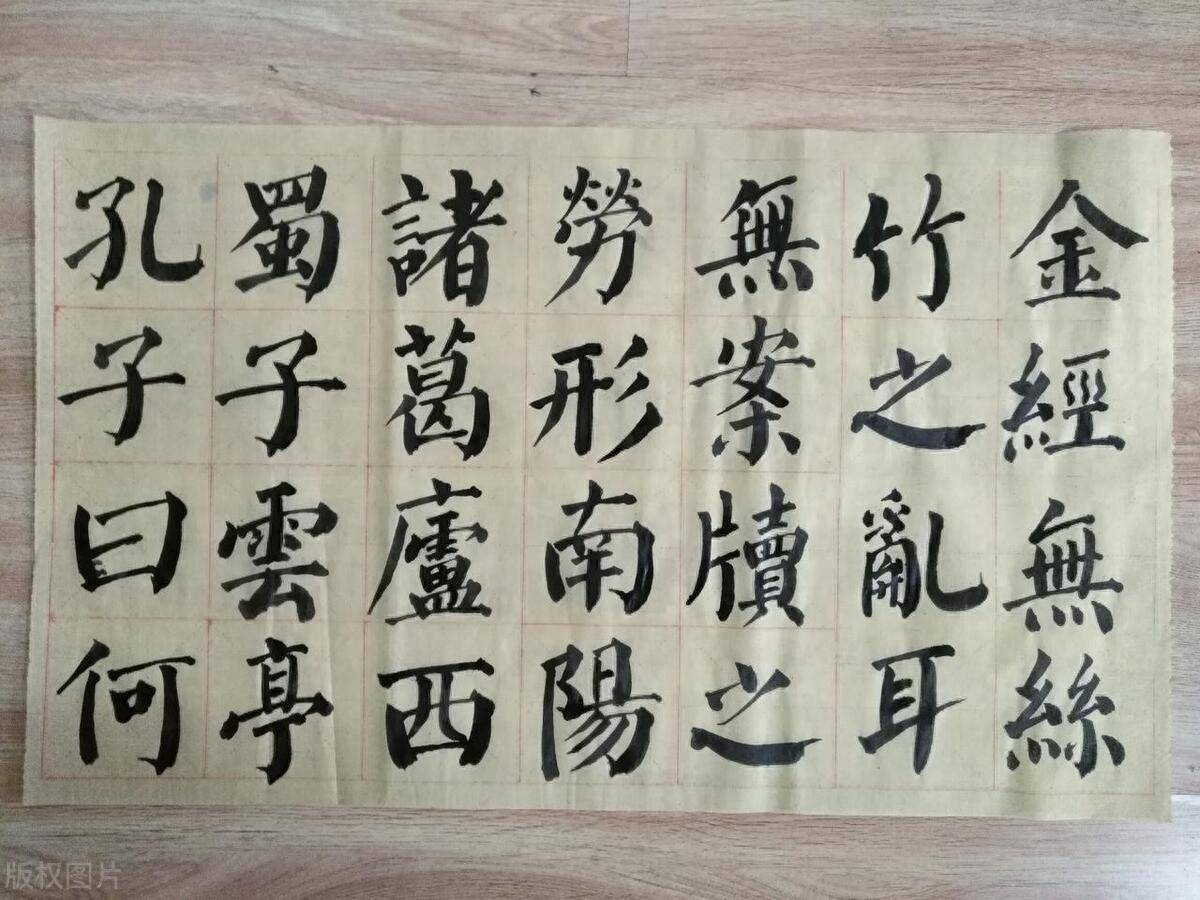 金經無絲
竹之亂耳
無案牘之
勞形南陽
諸葛廬西
蜀子雲亭
孔子曰何
版权图片